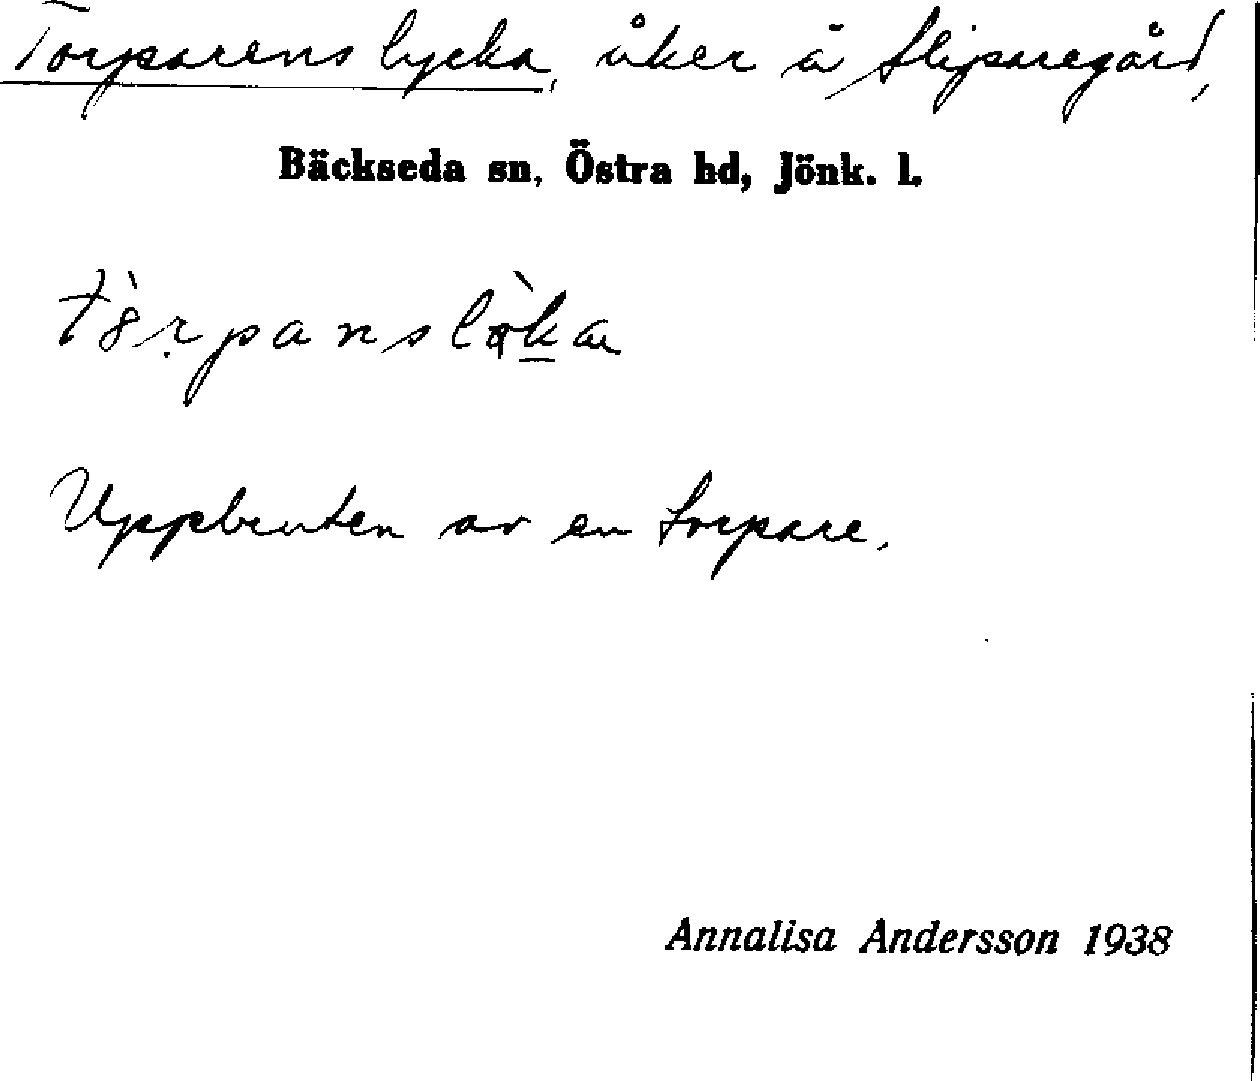 Torparens lycka, åker å Sliparegård,
Bäckseda sn, Östra hd, Jönk. l.
Uppbruten av en torpare.
Annalisa Andersson 1938